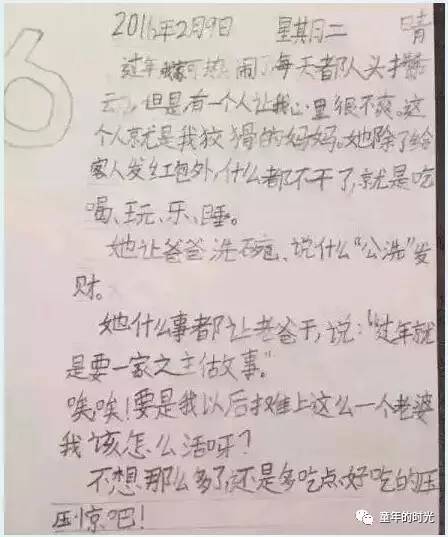 6
2016年2月9日 星期二 晴
过年我家可热闹了,每天都人头攒
云,但是,有一个人让我心里很不爽。这
个人就是我狡猾的妈妈。她除了给
客人发红包外,什么都不干了,就是吃
喝、玩、乐、睡。
她让爸爸洗碗、说什么“公洗”发
财。
她什么事都让老爸干,说:“过年就
是要一家之主做故事。”
唉,唉!要是我以后摊上这么一个老婆
我该怎么活呀?
不想那么多了,还是多吃点好吃的压
压惊吧!
童年的时光